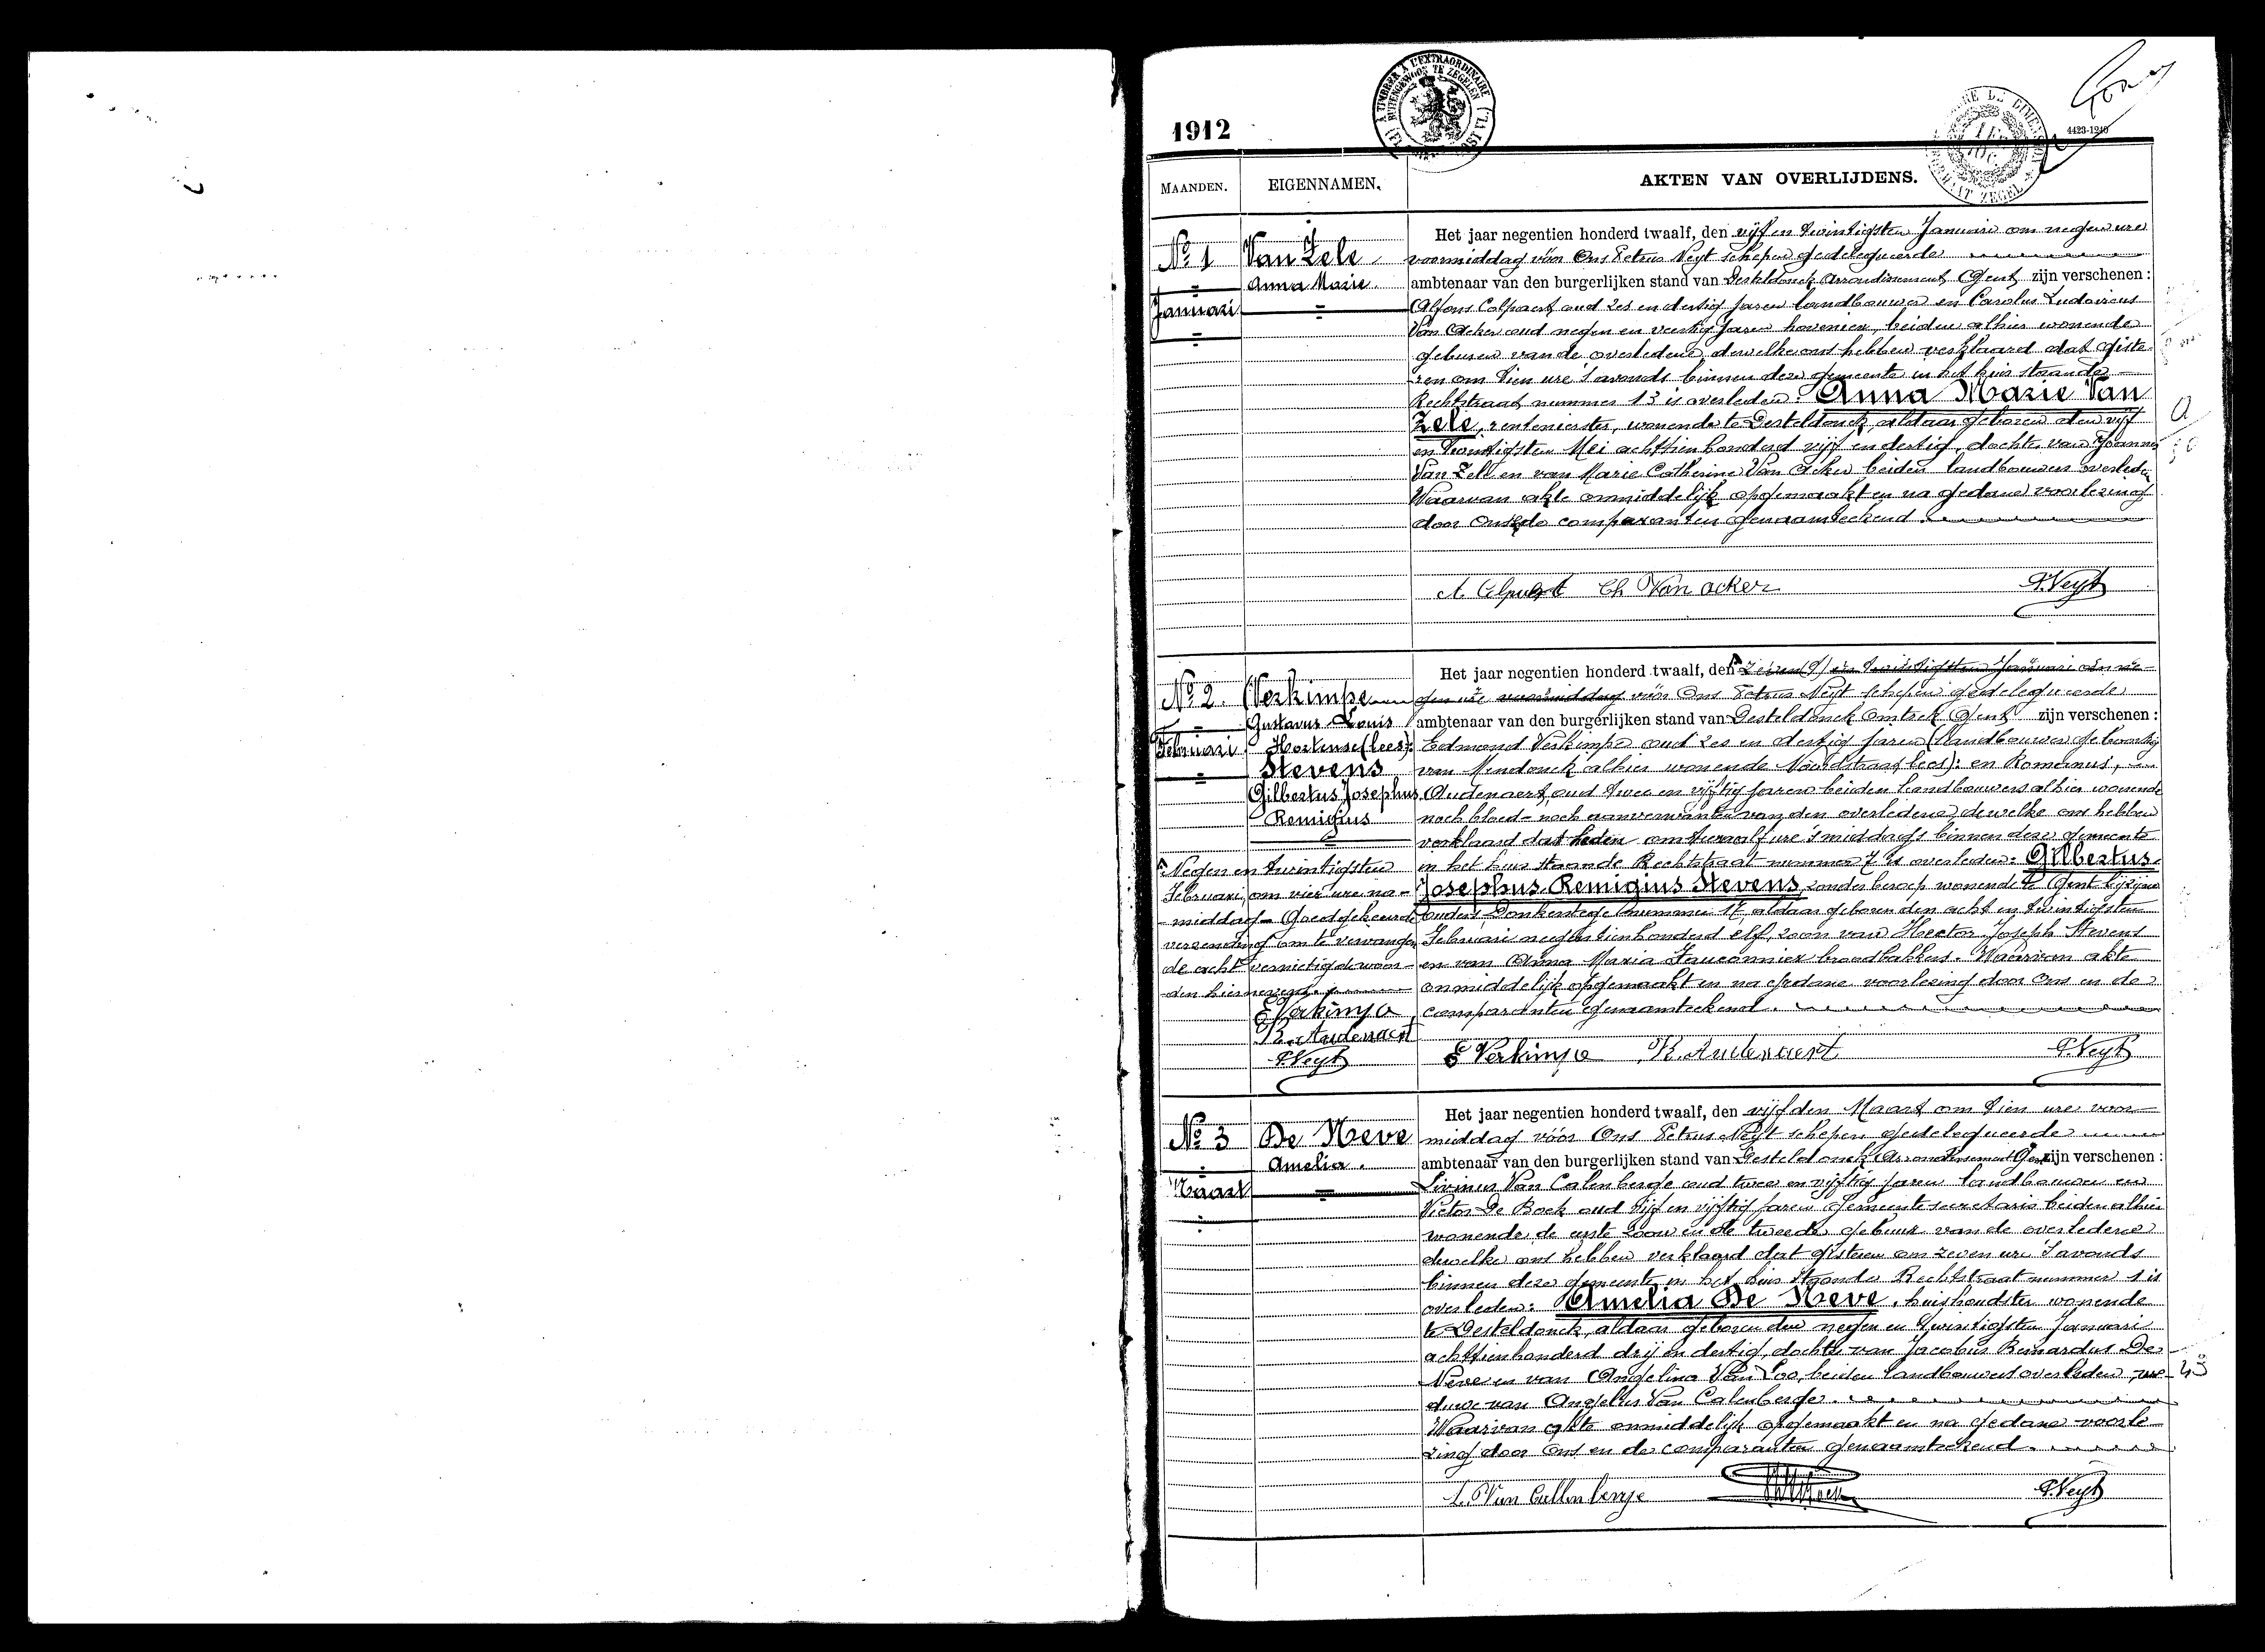 1912
A TIMBRER A L'EXTRAORDINAIRE
BUITENGEWOON TE ZEGELEN
4423-1240
MAANDEN.
EIGENNAMEN.
AKTEN VAN OVERLIJDENS.
No. 1
Januari
Van Zele
Anna Marie.
Het jaar negentien honderd twaalf, den vijf en twintigsten Januari om negen ure
voormiddag vóór Ons Petrus Neyt schepen gedelegueerde
ambtenaar van den burgerlijken stand van Desteldonck Arrondissement Gent zijn verschenen :
Alfons Colpaert oud zes en dertig jaren landbouwer en Carolus Ludovicus
Van Acker oud negen en veertig jaren hovenier, beiden alhier wonende
geburen van de overledene, dewelke ons hebben verklaard dat giste-
ren om tien ure 's avonds binnen deze gemeente in het huis staande
Rechtstraat nummer 13 is overleden: Anna Marie Van
Zele, rentenierster, wonende te Desteldonck, aldaar geboren den vijf
en twintigsten Mei achttienhonderd vijf en dertig, dochter van Joannes
Van Zele en van Marie Catherine Van Acker beiden landbouwers overleden
Waarvan akte onmiddelijk opgemaakt en na gedane voorlezing
door Ons en de comparanten genaamteekend.
A. Colpaert Ch Van acker P. Neyt
No. 2.
Februari
Verkimpe
Gustavus Louis
Hortense (lees):
Stevens
Gilbertus Josephus
Remigius
Negen en twintigsten
Februari, om vier ure na-
middag - Goedgekeurde
verzending om te vervangen
de acht vernietigde woor-
den hiernevens.
E Verkimpe
R. Audenaert
P. Neyt
Het jaar negentien honderd twaalf, den zeven en twintigsten Januari om ne-
gen ure voormiddag vóór Ons Petrus Neyt schepen gedelegueerde
ambtenaar van den burgerlijken stand van Desteldonck Omtrek Gent zijn verschenen :
Edmond Verkimpe oud zes en dertig jaren (landbouwer geboortig
van Mendonck alhier wonende Noordstraat, lees): en Romanus,
Audenaert, oud twee en vijftig jaren beiden landbouwers alhier wonende
noch bloed- noch aanverwanten van den overledene, dewelke ons hebben
verklaard dat heden om twaalf ure 's middags binnen deze gemeente
in het huis staande Rechtstraat nummer 7 is overleden: Gilbertus
Josephus Remigius Stevens, zonder beroep wonende te Gent bij zijne
ouders, Donkerstege nummer 17, aldaar geboren den acht en twintigsten
Februari negentienhonderd elf, zoon van Hector Joseph Stevens
en van Anna Maria Fauconnier broodbakkers. Waarvan akte
onmiddelijk opgemaakt en na gedane voorlezing door Ons en de
comparanten genaamteekend.
E Verkimpe R. Audenaert P. Neyt
No. 3
Maart
De Neve
Amelia.
Het jaar negentien honderd twaalf, den vijfden Maart om tien ure voor-
middag vóór Ons Petrus Neyt schepen gedelegueerde
ambtenaar van den burgerlijken stand van Desteldonck Arrondissement Gent zijn verschenen :
Livinus Van Calenberge oud twee en vijftig jaren landbouwer en
Victor De Bock oud vijf en vijftig jaren gemeentesecretaris beiden alhier
wonende, de eerste zoon en de tweede gebuur van de overledene
dewelke ons hebben verklaard dat gisteren om zeven ure 's avonds
binnen deze gemeente in het huis staande Rechtstraat nummer 1 is
overleden: Amelia De Neve, huishoudster wonende
te Desteldonck, aldaar geboren den negen en twintigsten Januari
achttienhonderd drij en dertig, dochter van Jacobus Bernardus De
Neve en van Angelina Van Loo, beiden landbouwers overleden, we-
duwe van Angelus Van Calenberge.
Waarvan akte onmiddelijk opgemaakt en na gedane voorle-
zing door Ons en de comparanten genaamteekend.
L. Van Callenberge P. Neyt